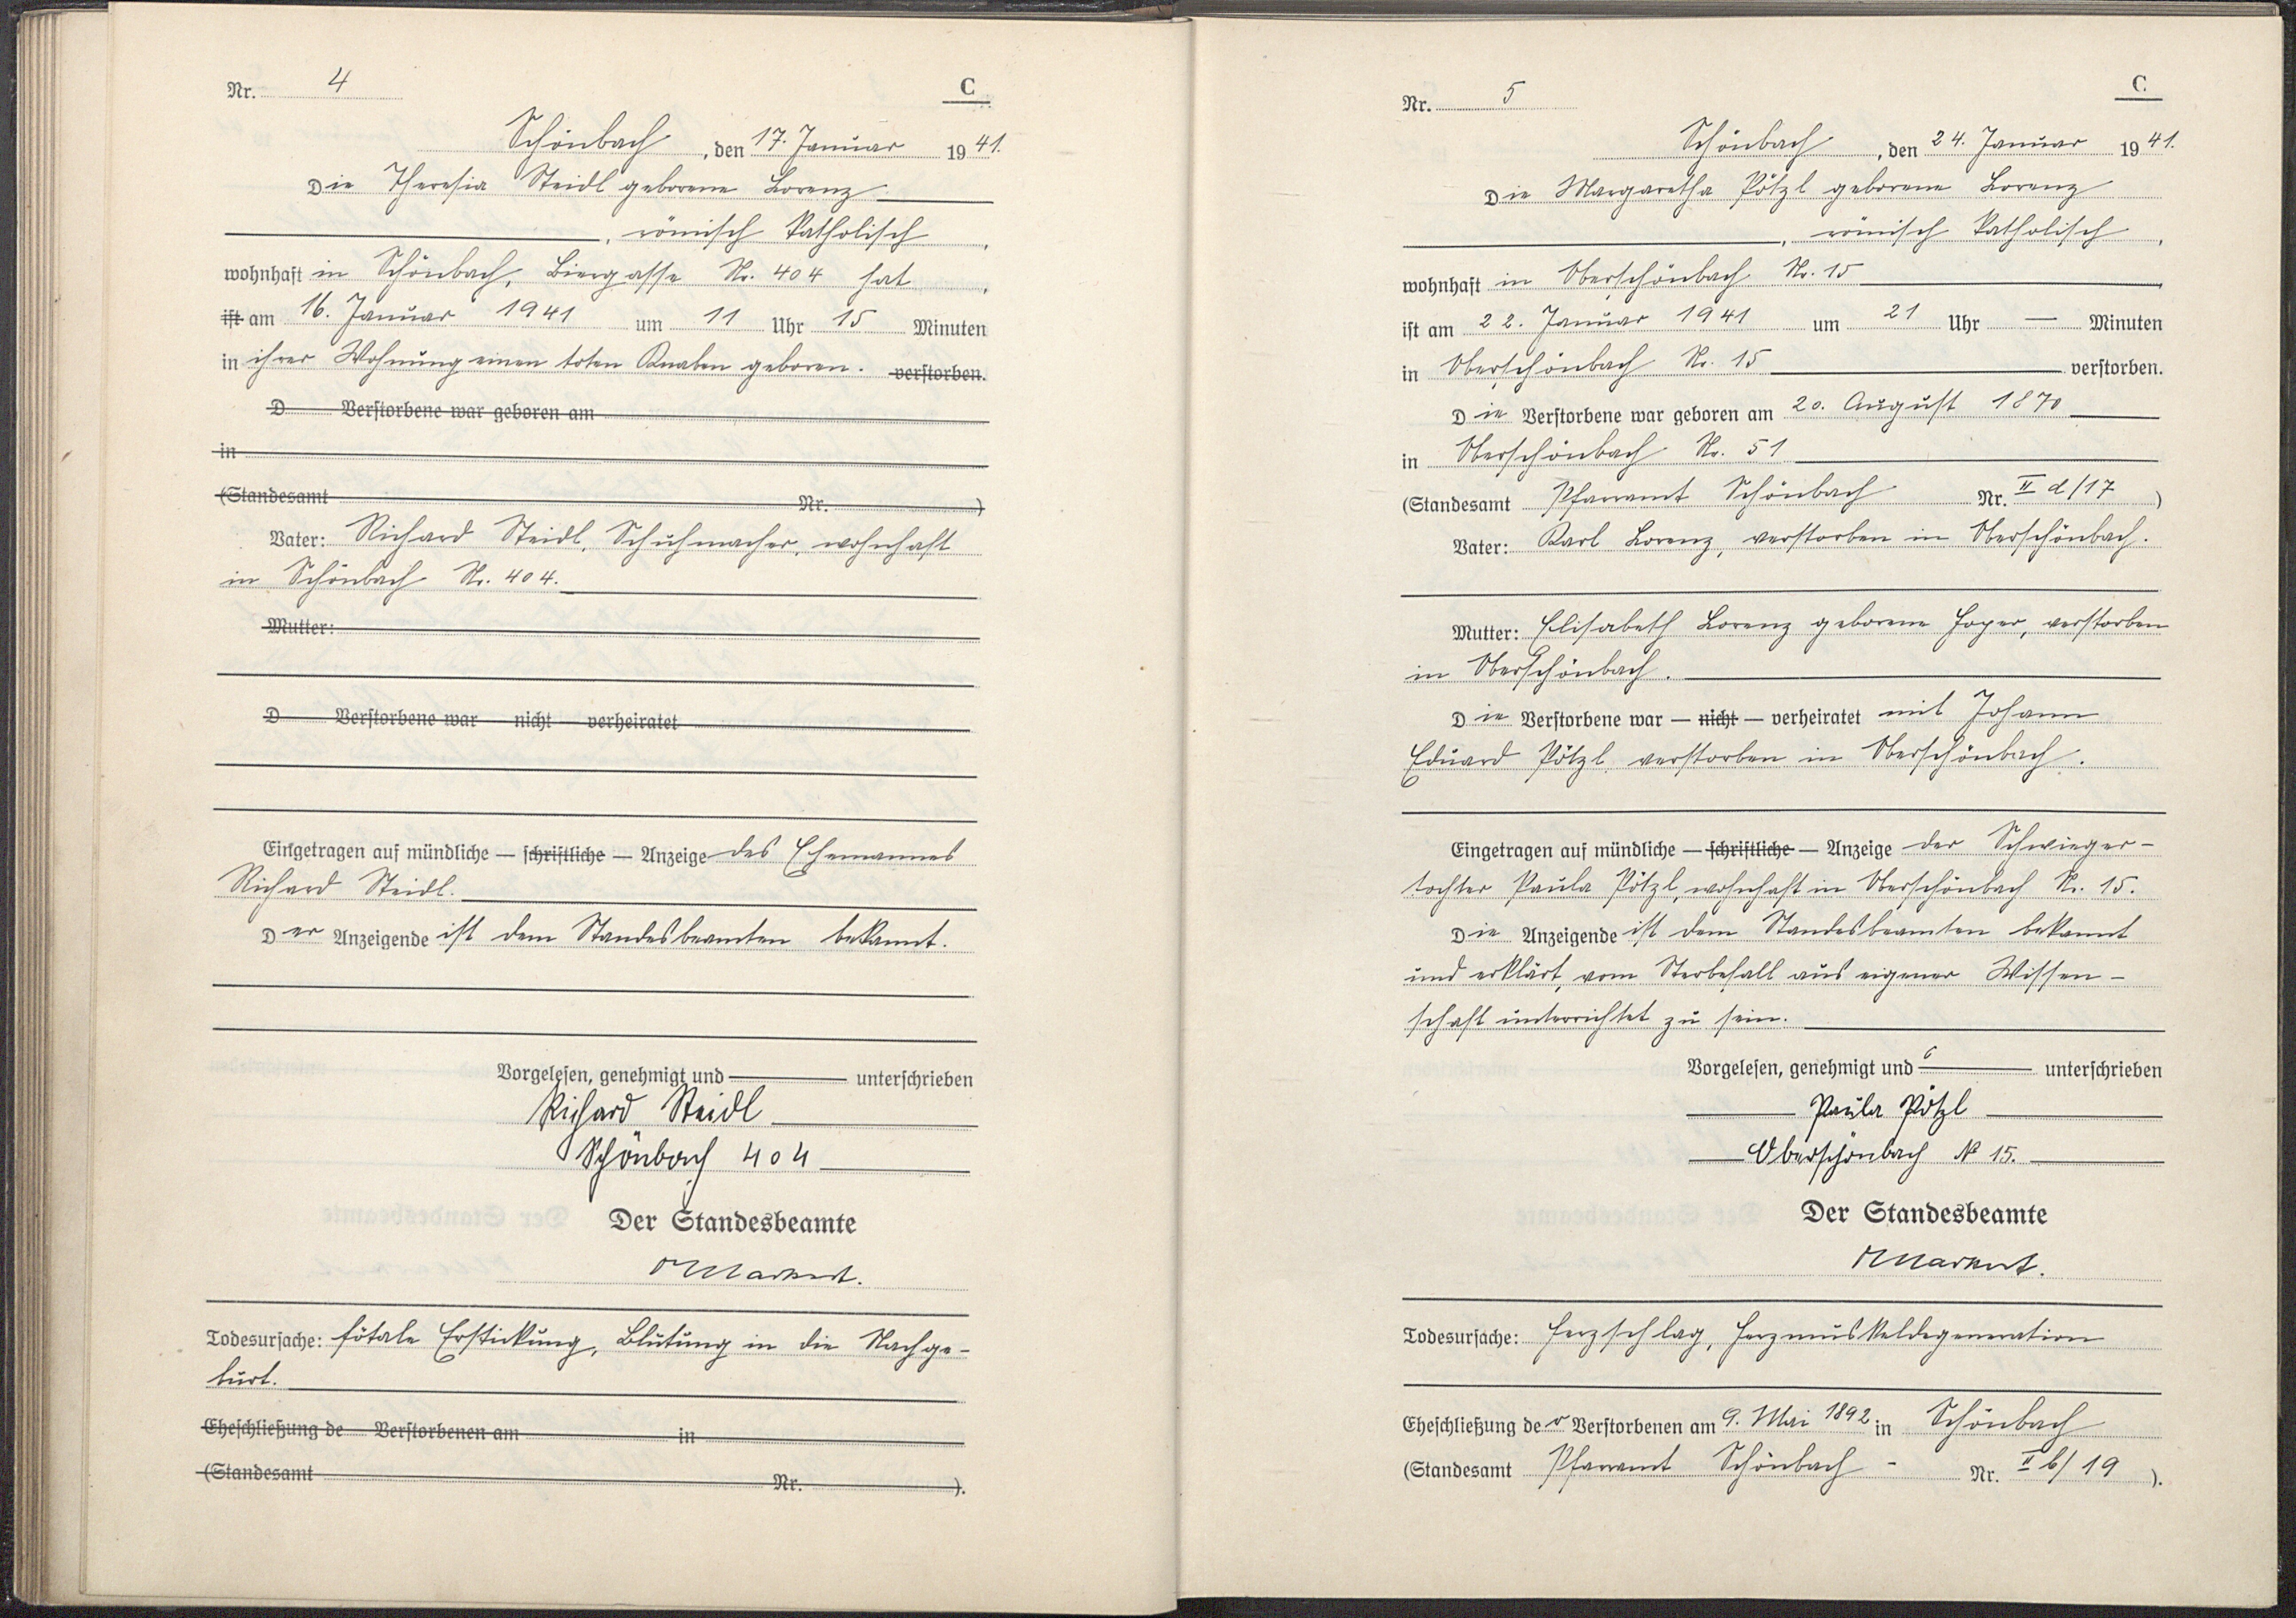 Nr. 4
C
Schönbach, den 17. Januar 1941.
Die Theresia Steidl geborene Lorenz
, römisch katholisch,
wohnhaft in Schönbach, Biergasse Nr. 404 hat,
ist am 16. Januar 1941 um 11 Uhr 15 Minuten
in ihrer Wohnung einen toten Knaben geboren. verstorben.
D Verstorbene war geboren am
in
(Standesamt Nr. )
Vater: Richard Steidl, Schuhmacher, wohnhaft
in Schönbach Nr. 404.
Mutter:
D Verstorbene war nicht verheiratet
Eingetragen auf mündliche — schriftliche — Anzeige des Ehemannes
Richard Steidl.
Der Anzeigende ist dem Standesbeamten bekannt.
Vorgelesen, genehmigt und unterschrieben
Richard Steidl
Schönbach 404
Der Standesbeamte
Markert.
Todesursache: fötale Erstickung, Blutung in die Nachge-
burt.
Eheschließung de Verstorbenen am in
(Standesamt Nr. ).
Nr. 5
C
Schönbach, den 24. Januar 1941.
Die Margaretha Pötzl geborene Lorenz
, römisch katholisch,
wohnhaft in Oberschönbach Nr. 15
ist am 22. Januar 1941 um 21 Uhr — Minuten
in Oberschönbach Nr. 15 verstorben.
Die Verstorbene war geboren am 20. August 1870
in Oberschönbach Nr. 51
(Standesamt Pfarramt Schönbach Nr. II d/17 )
Vater: Karl Lorenz, verstorben in Oberschönbach.
Mutter: Elisabeth Lorenz geborene Hoyer, verstorben
in Oberschönbach.
Die Verstorbene war — nicht — verheiratet mit Johann
Eduard Pötzl, verstorben in Oberschönbach.
Eingetragen auf mündliche — schriftliche — Anzeige der Schwieger-
tochter Paula Pötzl, wohnhaft in Oberschönbach Nr. 15.
Die Anzeigende ist dem Standesbeamten bekannt
und erklärt, vom Sterbefall aus eigener Wissen-
schaft unterrichtet zu sein.
Vorgelesen, genehmigt und unterschrieben
Paula Pötzl
Oberschönbach № 15.
Der Standesbeamte
Markert.
Todesursache: Herzschlag, Herzmuskeldegeneration
Eheschließung der Verstorbenen am 9. Mai 1892 in Schönbach
(Standesamt Pfarramt Schönbach - Nr. II b/19 ).